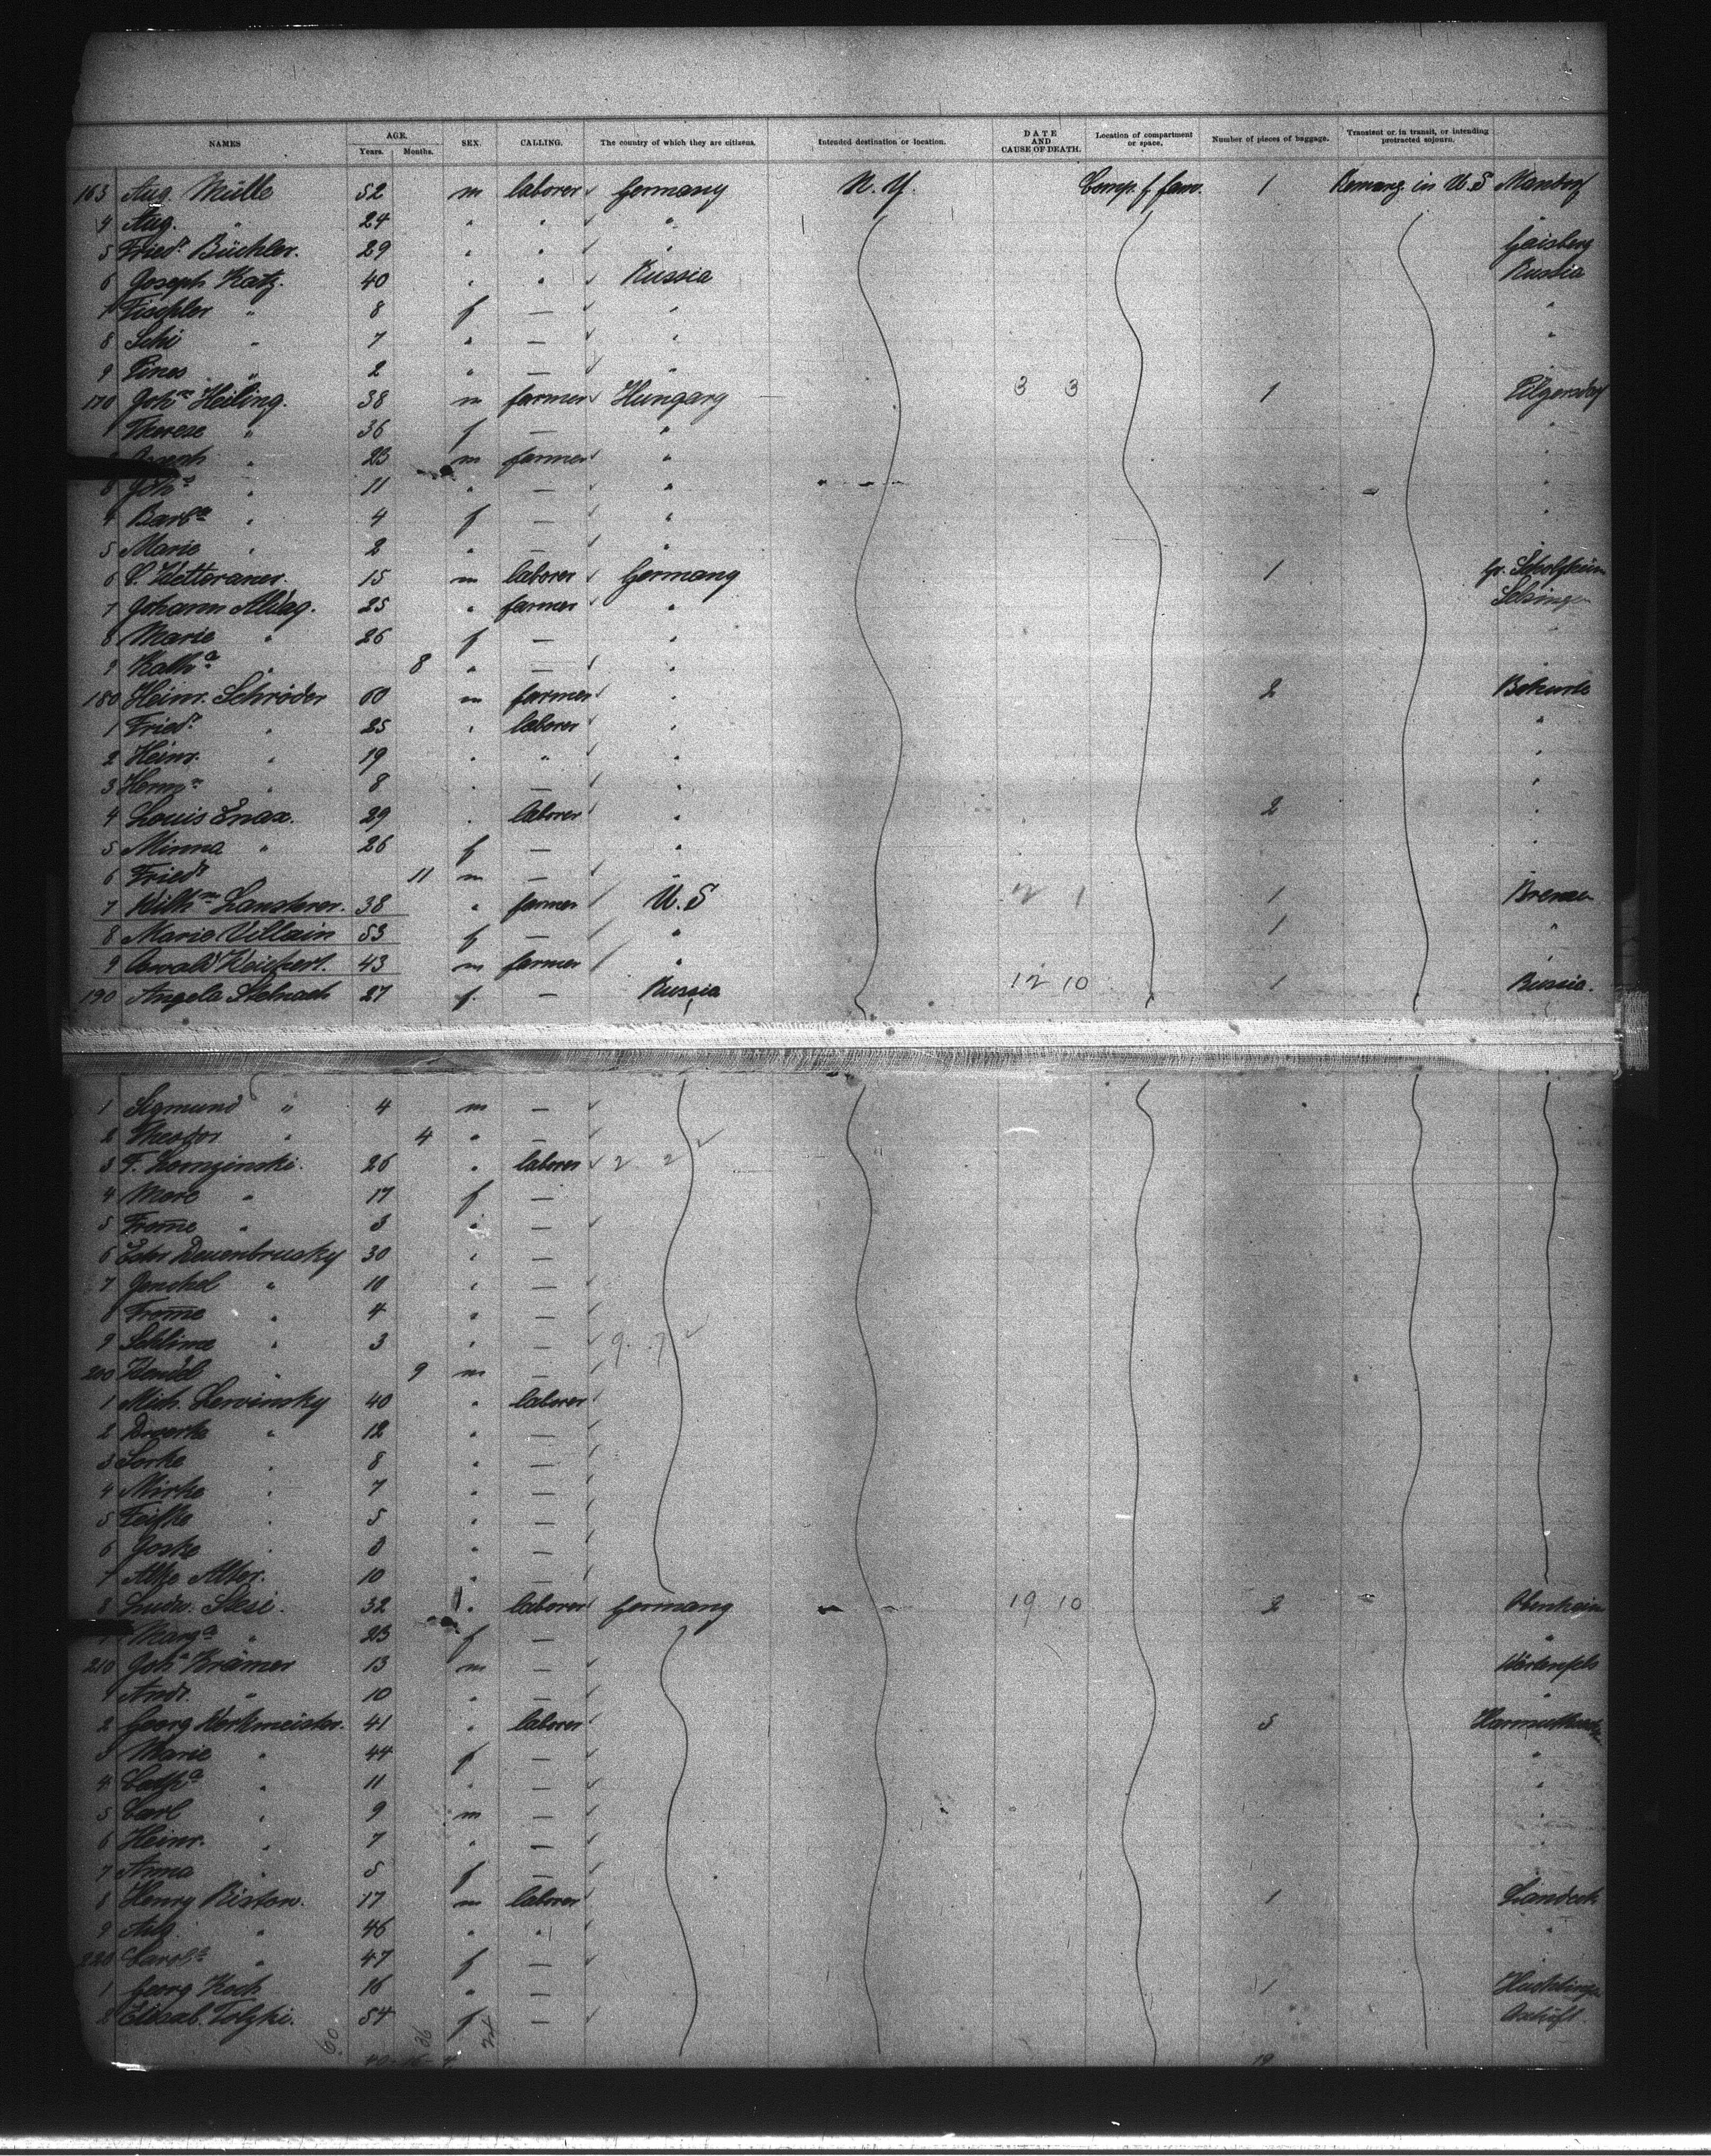 NAMES AGE. Years. Months. SEX. CALLING. The country of which they are citizens. Intended destination or location. DATE AND CAUSE OF DEATH. Location of compartment or space. Number of pieces of baggage. Transient or in transit, or intending protracted sojourn.
163 Aug. Mülle 52 m laborer Germany N. Y. Comp. f 1 in U.S
4 Aug. " 24 " " "
5 Friedr. Büchler. 29 " " " Gaisberg
6 Joseph Katz. 40 " " Russia Russia
7 Fischler " 8 f — " "
8 Schi " 7 " — " "
9 Pines " 2 " — "
170 Joh. Heiling. 38 m farmer Hungary 3 3 1 Pilgersdorf
1 Therese " 36 f — " "
Joseph " 23 m farmer " "
3 Joh. " 11 " — " "
4 Barba " 4 f — " "
5 Marie " 2 " — "
6 C. Wetteraner. 15 m laborer Germany 1 Gr.
7 Johann Aldag. 25 " farmer " Selsingen
8 Marie " 26 f — "
9 Katha " 8 " — " "
180 Heinr. Schröder 60 m farmer " 2
1 Friedr. " 25 " laborer " "
2 Heinr. " 19 " " " "
3 Herm. " 8 " — " "
4 Louis Enax. 29 " laborer " 2 "
5 Minna " 26 f — " "
6 Friedr. 11 m — " "
7 Wilhm Landerer. 38 " farmer U. S 2 1 1 Bremen
8 Marie Villain 53 f — " 1 "
9 Oswald Weichert. 43 m farmer " "
190 Angela Stelmach 27 f. — Russia 12 10 1 Russia.
1 Sigmund " 4 m —
2 Theodor " 4 " —
3 F. Lomzinski. 26 " laborer 2 2
4 Mare " 17 f —
5 Frome " 3 " —
6 Ester Deuenbrusky 30 " —
7 Jenckel " 10 " —
8 Frome " 4 " —
9 Schlime " 3 " — 9. 7
200 Wendel " 9 m —
1 Mich. Lewinsky 40 " laborer
2 Dwerke " 12 " —
3 Sorke " 8 " —
4 Mirke " 7 " —
5 Feifke " 5 " —
6 Joske " 3 " —
7 Alter. 10 " —
8 Ludw. Slesi. 32 " laborer Germany 19 10 2 Obenheim
9 Marga " 23 f — "
210 Joh. Krämer 13 m —
1 Andr. " 10 " — "
2 Georg Werkmeister. 41 " laborer 5
3 Marie " 44 f — "
4 Catha " 11 " — "
5 Carl " 9 m — "
6 Heinr. " 7 " — "
7 Anna " 5 f —
8 Henry Ristow. 17 m laborer 1 Landeck
9 Aug. " 46 " " "
220 Carola " 47 f — "
1 Georg Koch 16 " — 1
2 Elisab. Tolzki. 54 f —
60 36 24
19